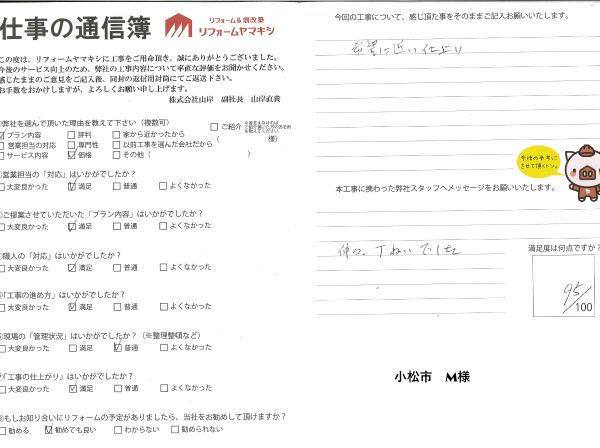 仕事の通信簿
リフォーム&増改築
リフォームヤマキシ
この度は、リフォームヤマキシに工事をご用命頂き、誠にありがとうございました。
今後のサービス向上のため、弊社の工事内容について率直な評価をお聞かせください。
感じたままのご意見をご記入後、同封の返信用封筒にてご返送下さい。
お手数をおかけしますが、よろしくお願い申し上げます。
株式会社山岸 副社長 山岸直貴
弊社を選んで頂いた理由を教えて下さい(複数可)
プラン内容 評判 家から近かったから
営業担当の対応 専門性 以前工事を選んだ会社だから
サービス内容 価格 その他(
ご紹介
( 様)
営業担当の「対応」はいかがでしたか?
大変良かった 満足 普通 よくなかった
ご提案させていただいた「プラン内容」はいかがでしたか?
大変良かった 満足 普通 よくなかった
職人の「対応」はいかがでしたか?
大変良かった 満足 普通 よくなかった
「工事の進め方」はいかがでしたか?
大変良かった 満足 普通 よくなかった
現場の「管理状況」はいかがでしたか?(※整理整頓など)
大変良かった 満足 普通 よくなかった
「工事の仕上がり」はいかがでしたか?
大変良かった 満足 普通 よくなかった
もしお知り合いにリフォームの予定がありましたら、当社をお勧めして頂けますか?
勧める 勧めても良い わからない 勧められない
今回の工事について、感じ頂た事をそのままご記入お願いいたします。
希望に近い仕上り
今後の参考にさせて頂くトン。
本工事に携わった弊社スタッフへメッセージをお願いいたします。
ていねいでした
満足度は何点ですか?
95/100
小松市 M様